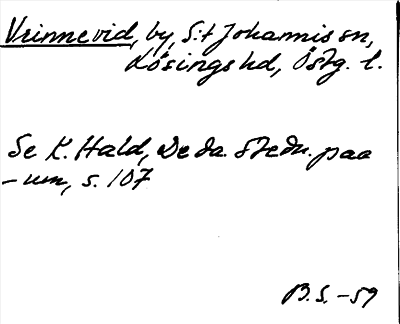 Vrinnevid, by, S:t Johannis sn,
Lösings hd, Östg. l.
Se K. Hald, De da. stedn. paa
-um, s. 107
B.S. -59